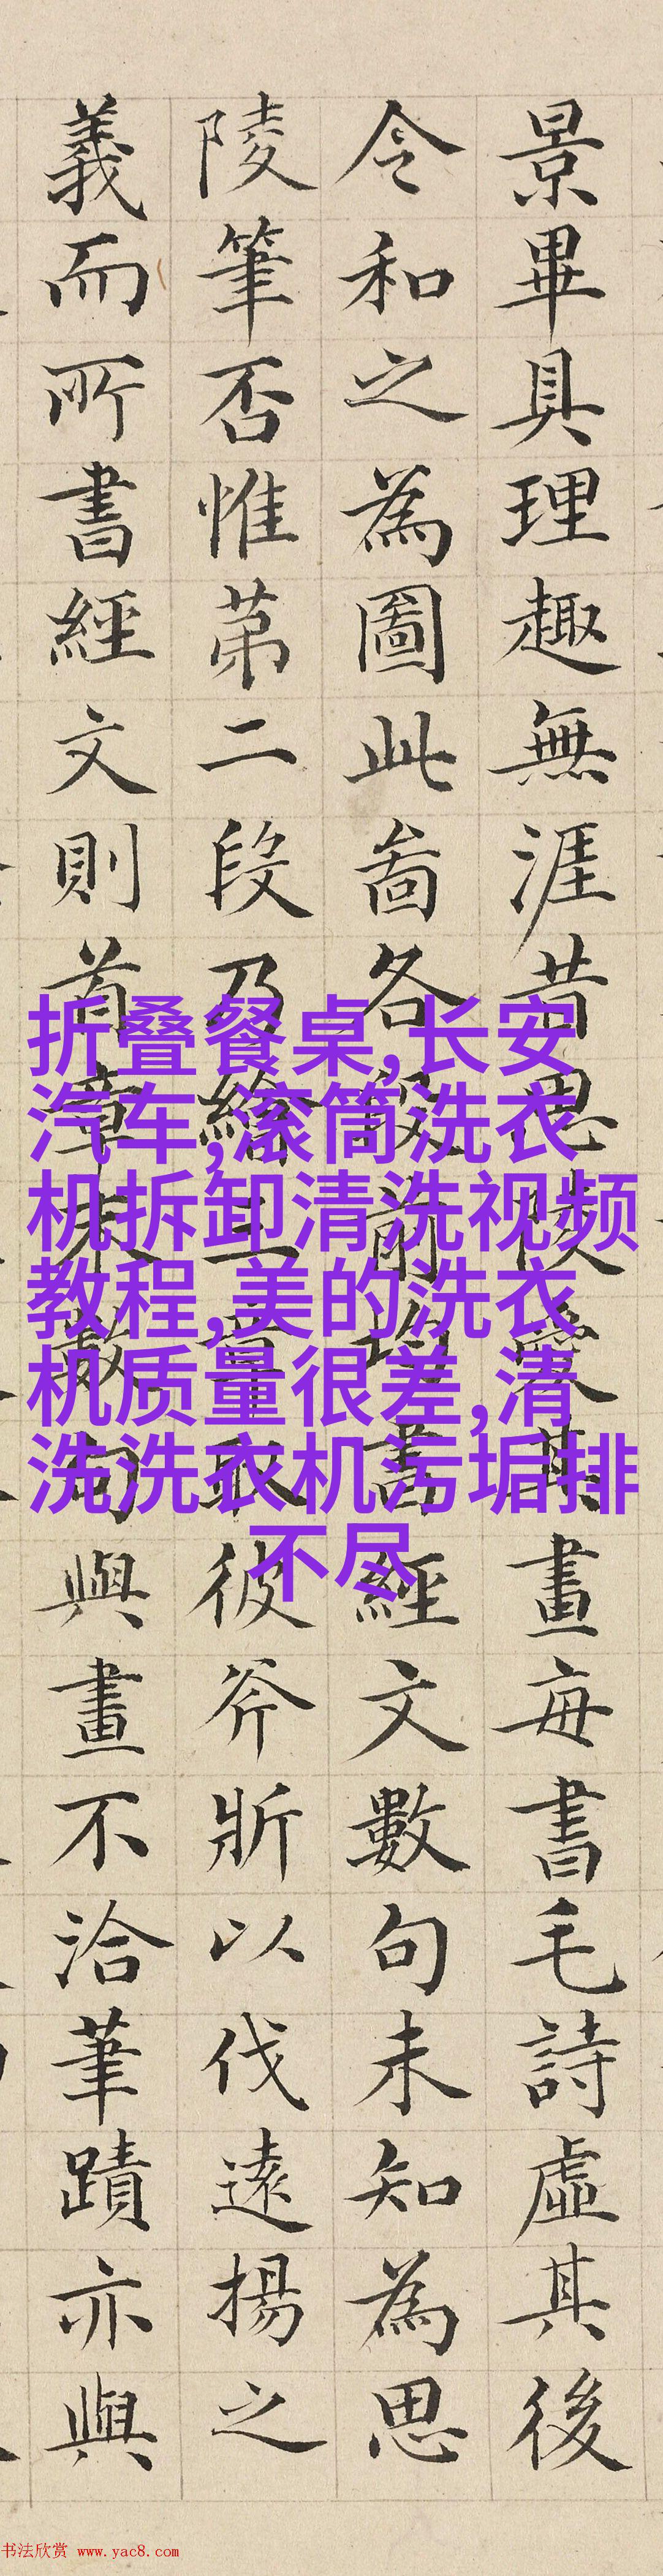 景畢具理趣無涯昔思陵愛其畫每書毛詩虛其後
令和之為圖此啚各段前均書經文數句未知為思
陵筆否惟苐二段乃繪三章取彼斧斨以伐遠揚之
義而所書經文則首章末數句與畫不洽筆蹟亦與
折叠餐桌,长安
汽车,滚筒洗衣
机拆卸清洗视频
教程,美的洗衣
机质量很差,清
洗洗衣机污垢排
不尽
书法欣赏 www.yac8.com